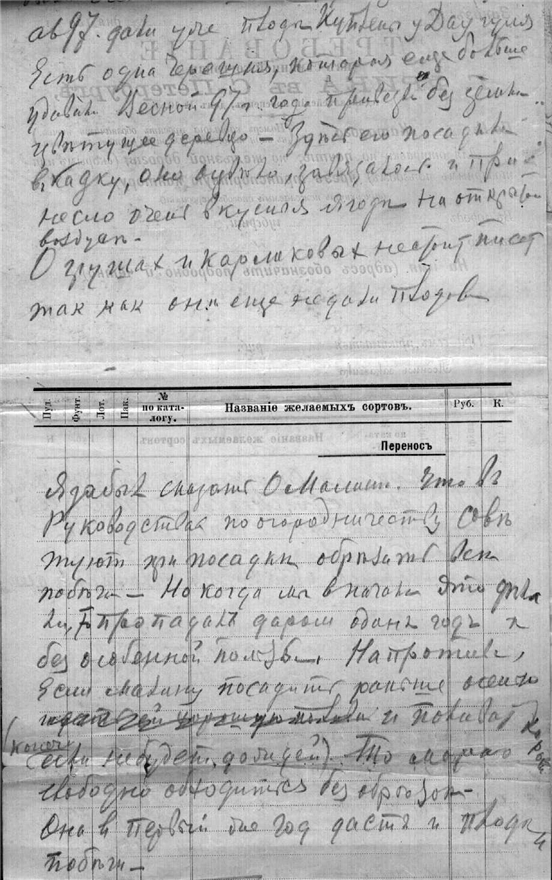 ав 97. дали уже плоды купленны у Даугуля
Есть одна черешня, которая еще больше
удивил. Весной 97 г. года привезли без земли
цветущее деревцо — Здѣсь его посадили
в кадку, оно вузяло, завязалось и при
несло очень вкусныя ягоды на открытом
воздухе.
О грушах и карликовых нестоит писат
так как они еще недали плодов
Пуд. Фунт. Лот. Пак. № по ката-логу. Названіе желаемыхъ сортовъ. Руб. К.
Переносъ
Я забыл сказать О Малине. Что въ
Руководствах по огородничеству совѣ
туют при посадки обрѣзать все
побѣги — Но когда мы в начали это дѣла
ли, то пропадалъ даром один годъ и
без особенной пользы. Напротив,
Если малину посадить раньше осенью
и поливат
(конечно если небудет дождей). То можно
хорош
свободно обходиться без обрѣзки —
Она в первый же год дастъ и плоды и
побѣги —